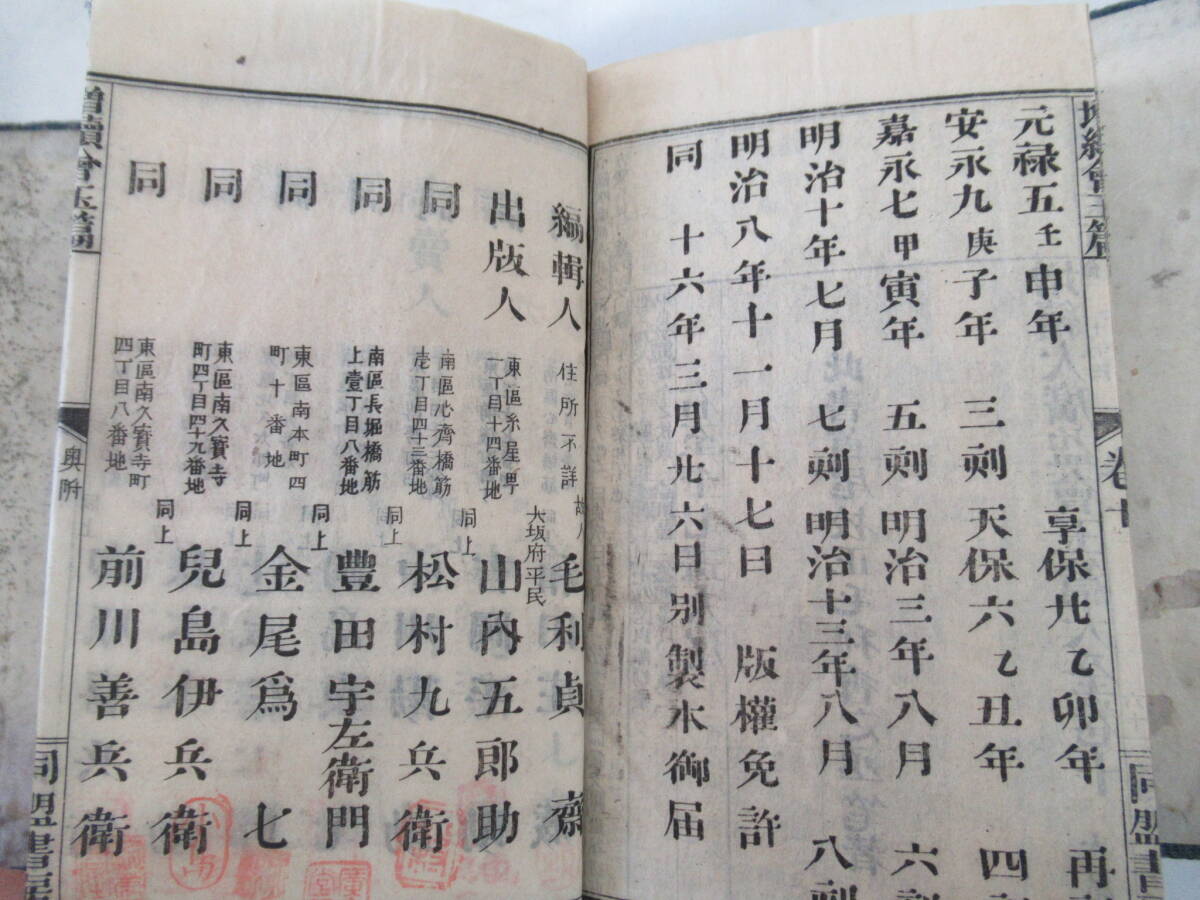 元禄五壬申年 享保九乙卯年 再
安永九庚子年 三刻 天保六乙丑年 四
嘉永七甲寅年 五刻 明治三年八月 六刻
明治十年七月 七刻 明治十三年八月 八刻
明治八年十一月十七日 版權免許
同 十六年三月九六日別製本御届
卷十
同盟書
編輯人 住所不詳 故人 毛利貞齋
出版人 東區糸屋町一丁目十四番地 大坂府平民 山内五郎助
同 南區心齋橋筋壱丁目四十三番地 同上 松村九兵衛
同 南區長堀橋筋上壹丁目八番地 同上 豊田宇左衛門
同 東區南本町四町十番地 同上 金尾爲七
同 東區南久寳寺町四丁目四十九番地 同上 兒島伊兵衛
同 東區南久寳寺町四丁目八番地 同上 前川善兵衛
增續會玉篇
奥附
同盟書